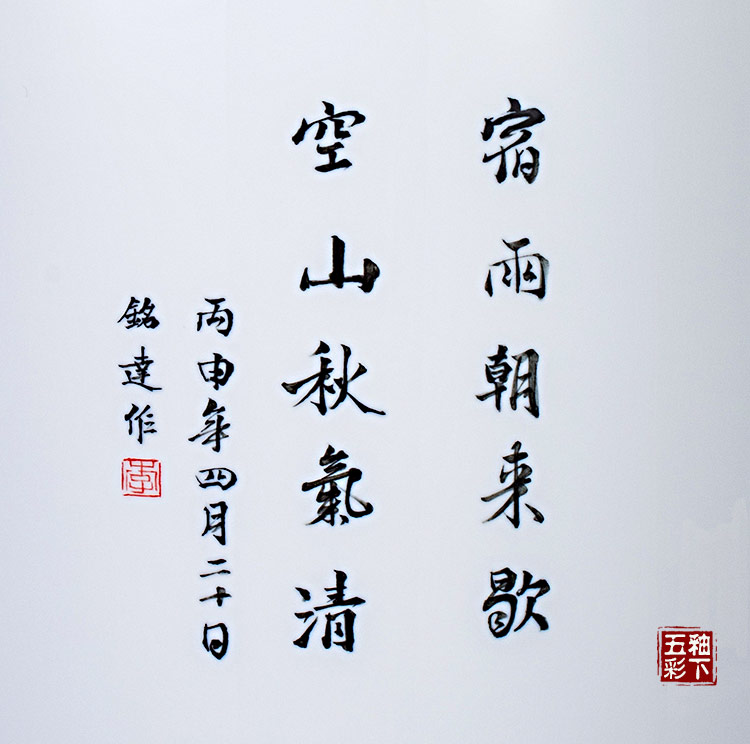 宿雨朝来歇
空山秋氣清
丙申年四月二十日
銘達作
李
釉下
五彩